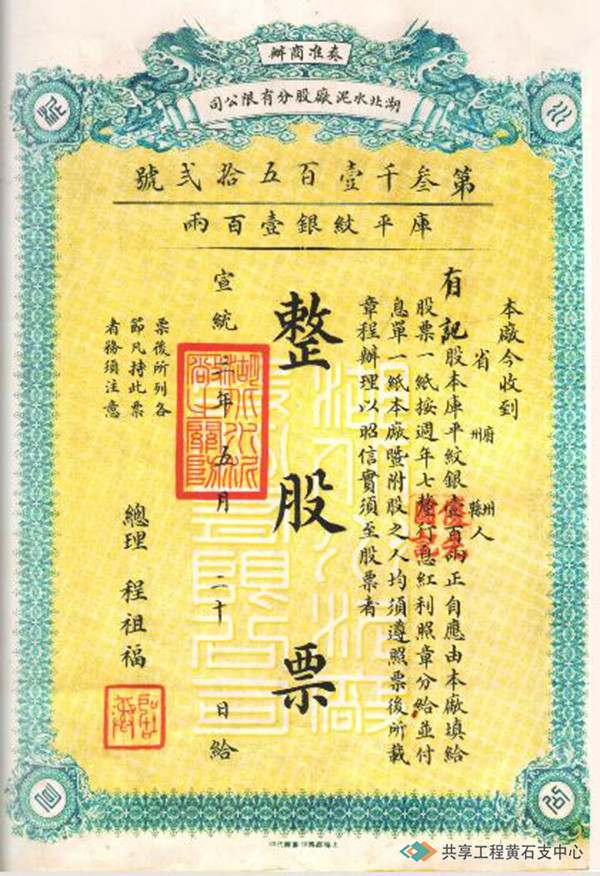 奏准商辦
湖北水泥廠股分有限公司
第叁千壹百五拾貳號
庫平紋銀壹百兩
本廠今收到
省 府州 州縣 人
有記股本庫平紋銀壹百兩正自應由本廠填給
股票一紙按週年七釐行息紅利照章分給並付
息單一紙本廠暨附股之人均須遵照票後所載
章程辦理以昭信實須至股票者
整股票
宣統 年五月二十日給
票後所列各
節凡持此票
者務須注意
總理 程祖福
共享工程黄石支中心